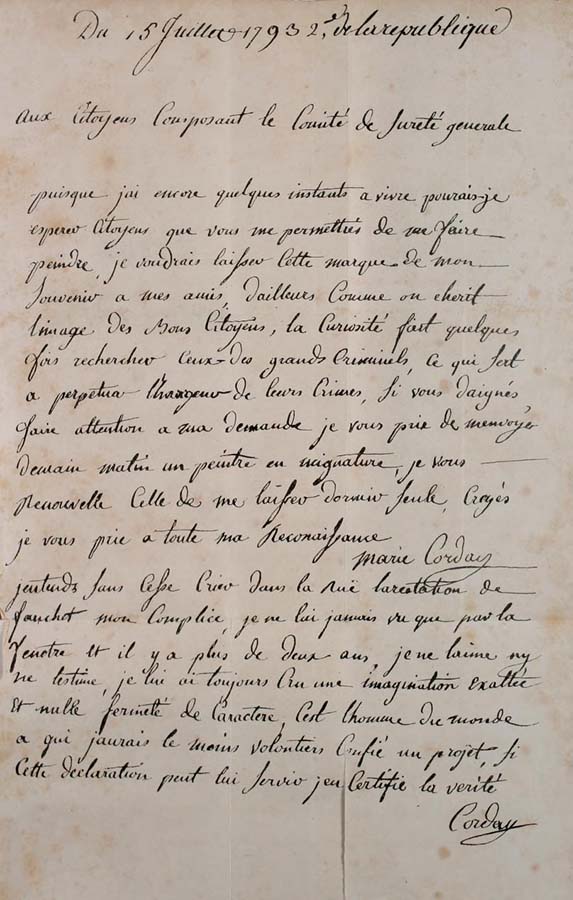 Du 15 Juillet 1793 2e de la republique
aux Citoyens Composant le Comité de Sureté generale
puisque jai encore quelques instants a vivre pourais-je
esperer Citoyens que vous me permettrés de me faire
peindre, je voudrais laisser cette marque de mon
Souvenir a mes amis, dailleurs Comme on cherit
limage des Bons Citoyens, la Curiosité fait quelques
fois rechercher Ceux des grands Criminels, ce qui sert
a perpetuer lhorreur de leurs Crimes, Si vous daignés
faire attention a ma demande je vous prie de menvoyer
demain matin un peintre en mignature, je vous
Renouvelle Celle de me laisser dormir Seule, Croyés
je vous prie a toute ma Reconaissance
Marie Corday
jentends Sans Cesse Crier dans la Ruë larestation de
fauchet mon Complice, je ne lai jamais vu que par la
fenetre et il y a plus de deux ans, je ne laime ny
ne lestime, je lui ai toujours Cru une imagination exaltée
et nulle fermeté de Caractere, Cest lhomme du monde
a qui jaurais le moins volontiers Confié un projet, Si
Cette déclaration peut lui servir jen Certifie la verité
Corday